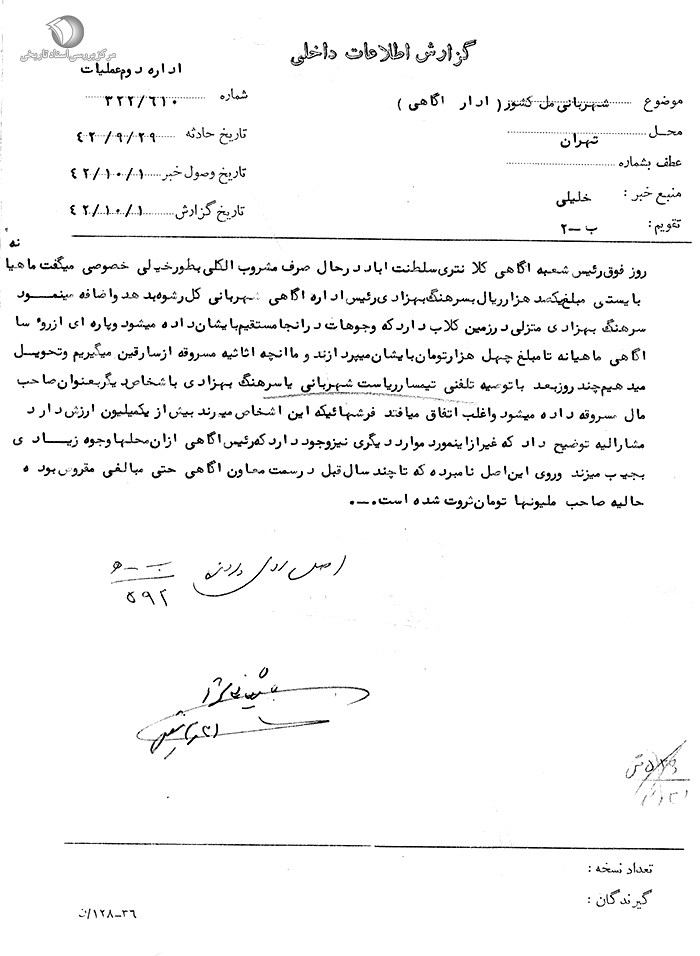 مرکز بررسی اسناد تاریخی
گزارش اطلاعات داخلی
اداره دوم عملیات
شماره ۳۲۲/۶۱۰
تاریخ حادثه ۴۲/۹/۲۹
تاریخ وصول خبر ۴۲/۱۰/۱
تاریخ گزارش ۴۲/۱۰/۱
موضوع شهربانی مل کشور ( ادار اگاهی )
محل تهران
عطف بشماره
منبع خبر : خلیلی
تقویم : ب-۲
نه
روز فوق رئیس شعبه اگاهی کلانتری سلطنت اباد در حال صرف مشروب الکلی بطور خیلی خصوصی میگفت ماهیا
بایستی مبلغ یکصد هزار ریال بسرهنگ بهزادی رئیس اداره اگاهی شهربانی کل رشوه بدهد و اضافه مینمود
سرهنگ بهزادی منزلی در زمین کلاب دارد که وجوهات در انجا مستقیم بایشان داده میشود و پاره ای از روسا
اگاهی ماهیانه تا مبلغ چهل هزار تومان بایشان میپردازند و ما انچه اثاثیه مسروقه از سارقین میگیریم و تحویل
میدهیم چند روز بعد با توصیه تلفنی تیمسار ریاست شهربانی یا سرهنگ بهزادی باشخاص دیگر بعنوان صاحب
مال مسروقه داده میشود و اغلب اتفاق میافتد فرشهائیکه این اشخاص میبرند بیش از یکمیلیون ارزش دارد
مشارالیه توضیح داد که غیر از اینمورد موارد دیگری نیز وجود دارد که رئیس اگاهی از ان محلها وجوه زیادی
بجیب میزند وروی این اصل نامبرده که تا چند سال قبل در سمت معاون اگاهی حتی مبالغی مقروض بوده
حالیه صاحب ملیونها تومان ثروت شده است.-.
اصل روی پرونده
۵۹۲
تعداد نسخه :
گیرندگان :
۳۶-۱۲۸/ن